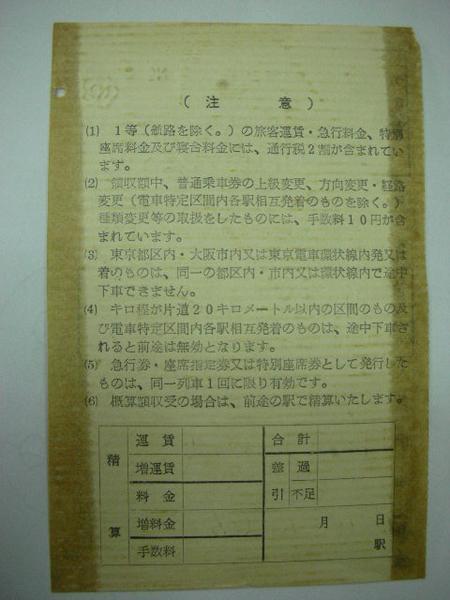 （注　意）
(1)　1等（航路を除く。）の旅客運賃・急行料金、特別
座席料金及び寝台料金には、通行税2割が含まれてい
ます。
(2)　領収額中、普通乗車券の上級変更、方向変更・経路
変更（電車特定区間内各駅相互発着のものを除く。）
種類変更等の取扱をしたものには、手数料10円が含
まれています。
(3)　東京都区内・大阪市内又は東京電車環状線内発又は
着のものは、同一の都区内・市内又は環状線内で途中
下車できません。
(4)　キロ程が片道20キロメートル以内の区間のもの及
び電車特定区間内各駅相互発着のものは、途中下車さ
れると前途は無効となります。
(5)　急行券・座席指定券又は特別座席券として発行した
ものは、同一列車1回に限り有効です。
(6)　概算額収受の場合は、前途の駅で精算いたします。
精算
運賃
増運賃
料金
増料金
手数料
合計
差引
過
不足
月　日
駅